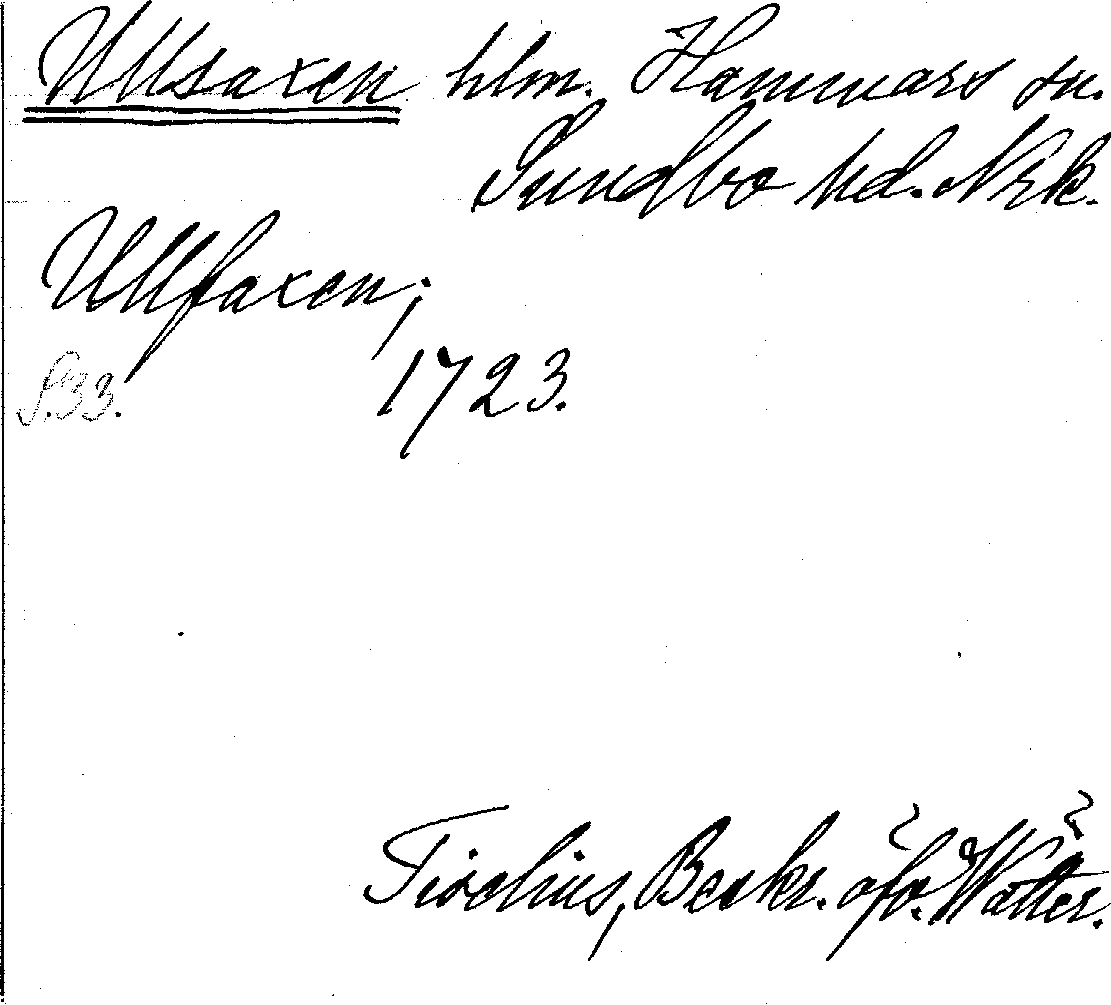 Ullsaxen hlm. Hammars sn.
Sundbo hd. Nrk.
Ullsaxen;
S. 33. 1723.
Tiselius, Beskr. öfv. Wätter.